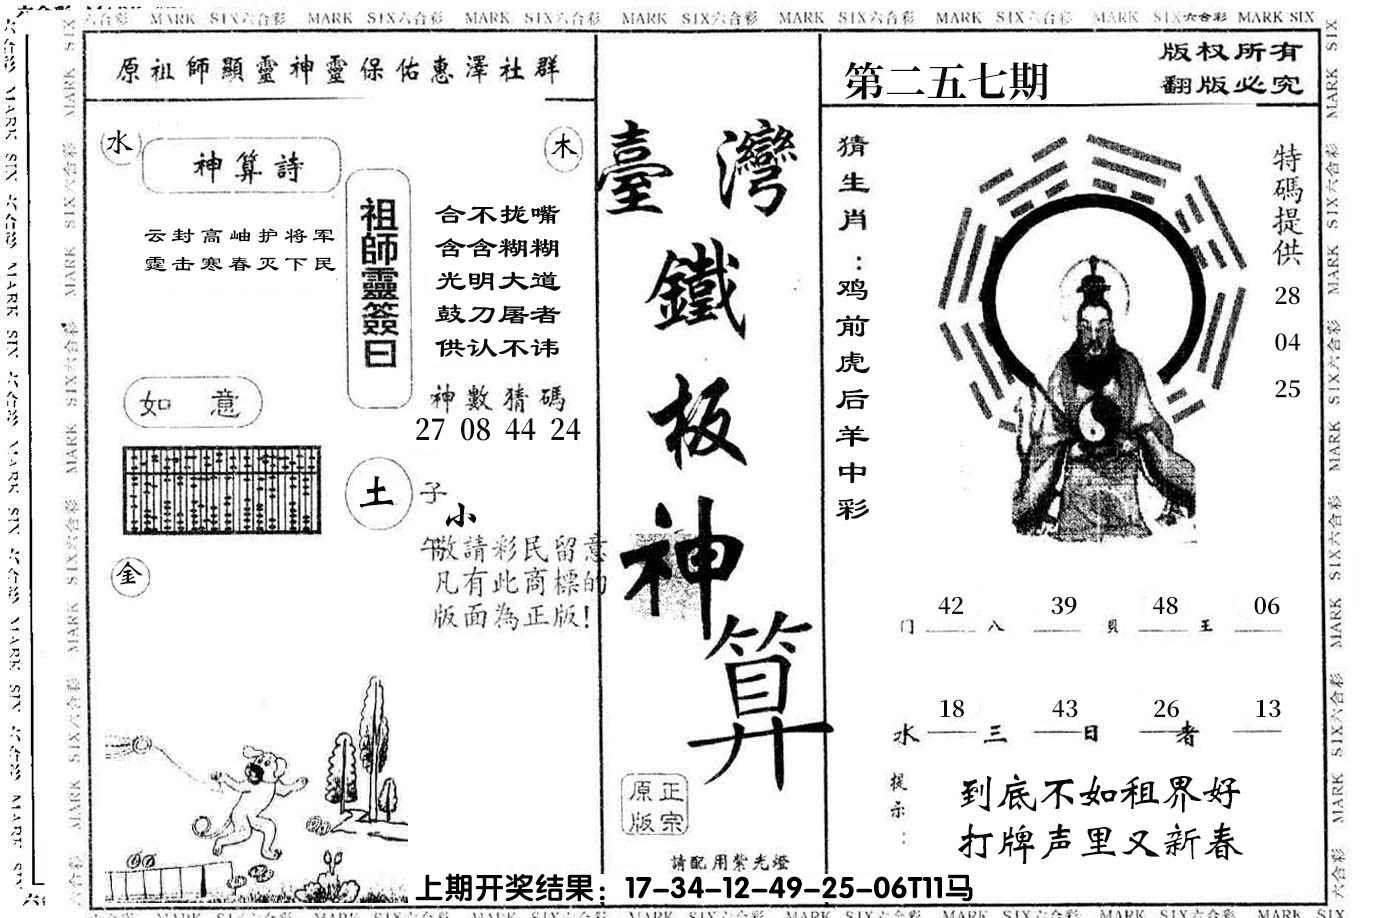 六合彩 MARK SIX六合彩 MARK SIX六合彩 MARK SIX六合彩 MARK SIX六合彩 MARK SIX六合彩 MARK SIX六合彩 MARK SIX六合彩 MARK SIX
原祖師顯靈神靈保佑惠澤社群
水
神算詩
木
云封高岫护将军
霆击寒春灭下民
祖師靈簽曰
合不拢嘴
含含糊糊
光明大道
鼓刀屠者
供认不讳
神數猜碼
27 08 44 24
如意
土
子
小
午
敬請彩民留意
凡有此商標的
版面為正版!
金
臺灣
鐵
板
神
算
原版
正宗
請配用紫光燈
第二五七期
版权所有
翻版必究
猜生肖:鸡前虎后羊中彩
特碼提供
28
04
25
42 39 48 06
门 八 貝 王
18 43 26 13
水 三 日 者
提示:
到底不如租界好
打牌声里又新春
上期开奖结果：17-34-12-49-25-06T11马